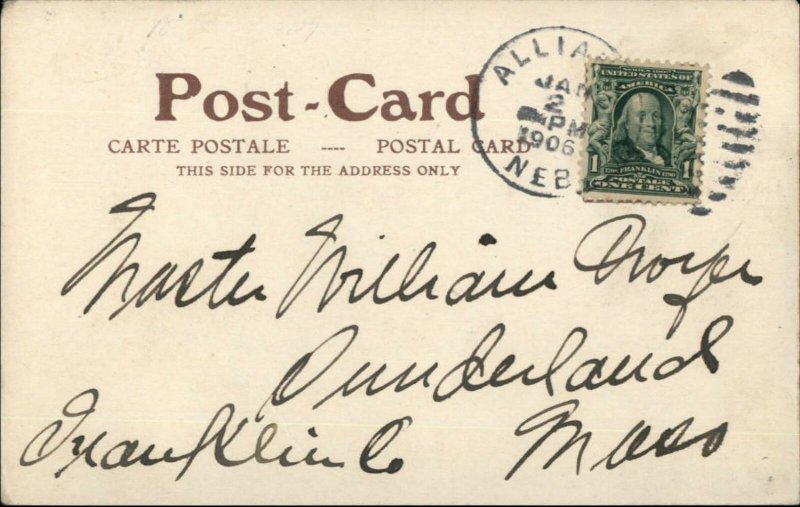 Post-Card
CARTE POSTALE ---- POSTAL CARD
THIS SIDE FOR THE ADDRESS ONLY
ALLIA
JAN
2
PM
1906
NEB
SERIES 1902
UNITED STATES OF
AMERICA
1 FRANKLIN 1
POSTAGE
ONE CENT
Master William
Sunderland
Franklin Co Mass